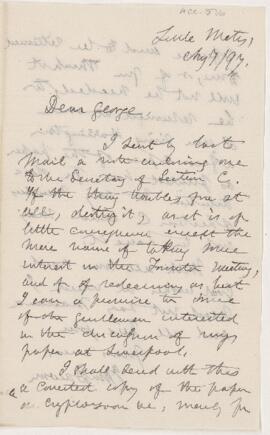 Acc. 576
Little Metis,
Aug 7/97.
Dear George
I sent by last
mail a note enclosing one
to the Secretary of Section C.
If the thing troubles you at
all, destroy it, as it is of
little consequence except the
mere name of taking some
interest in the Toronto Meeting,
and of redeeming as best
I can a promise to some
of the gentlemen interested
in the discussion of my
paper at Liverpool.
I shall send with this
a corrected copy of the paper
on Cryptozoon &c, merely for